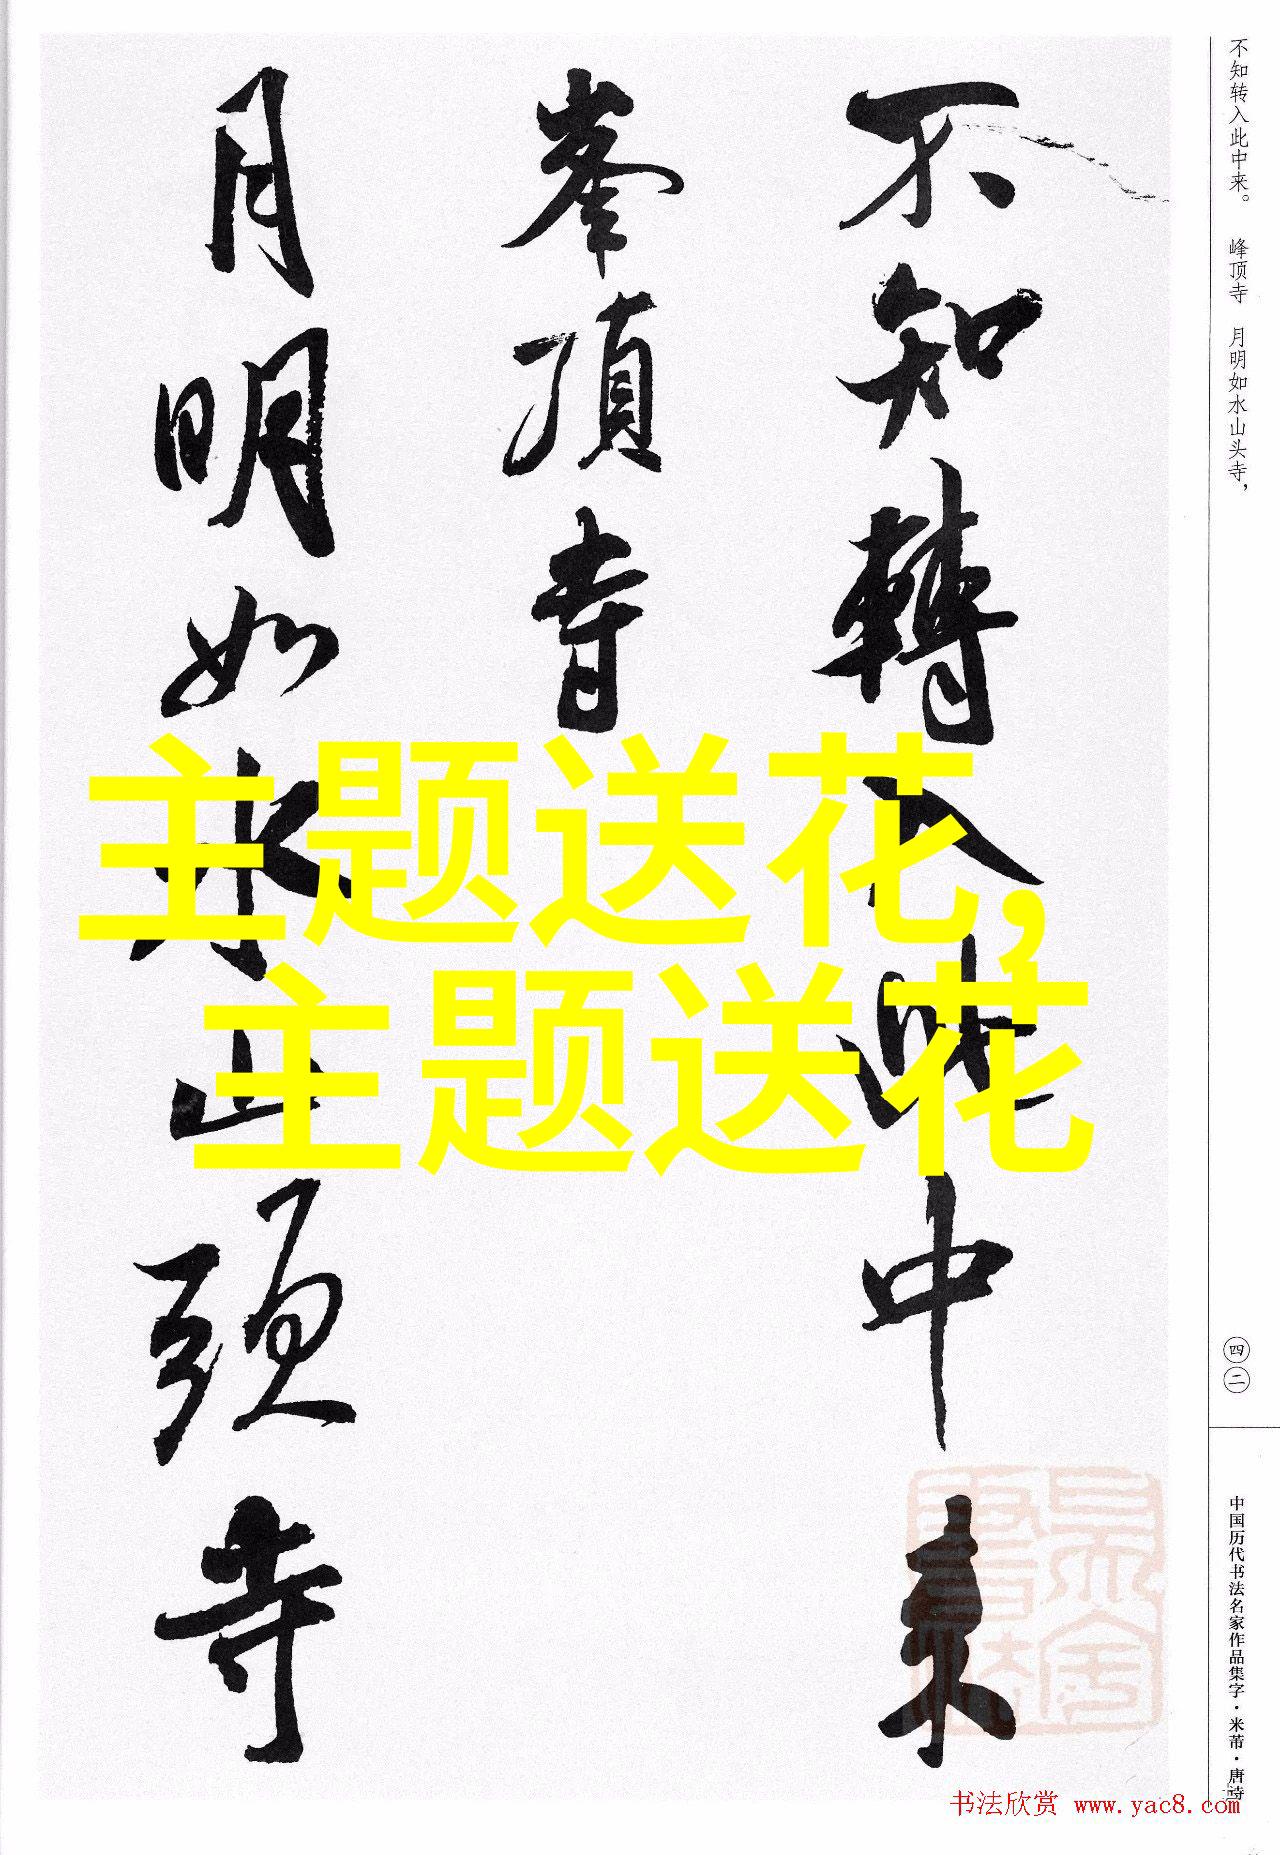 不知转入此中来。 峰顶寺 月明如水山头寺，
不知轉入此中来
峯頂寺
月明如水山頭寺
主题送花，
主题送花
四二
中国历代书法名家作品集字·米芾·唐诗
书法欣赏 www.yac8.com